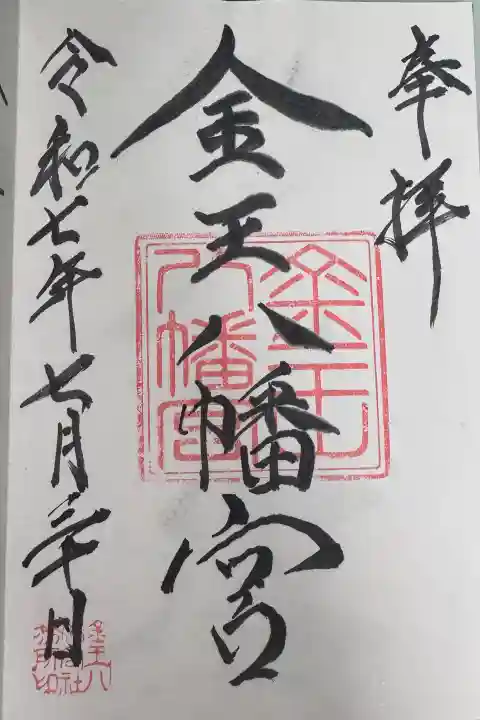 奉拝
金王八幡宮
金王
八幡宮
令和七年七月三十日
金王八
務所印